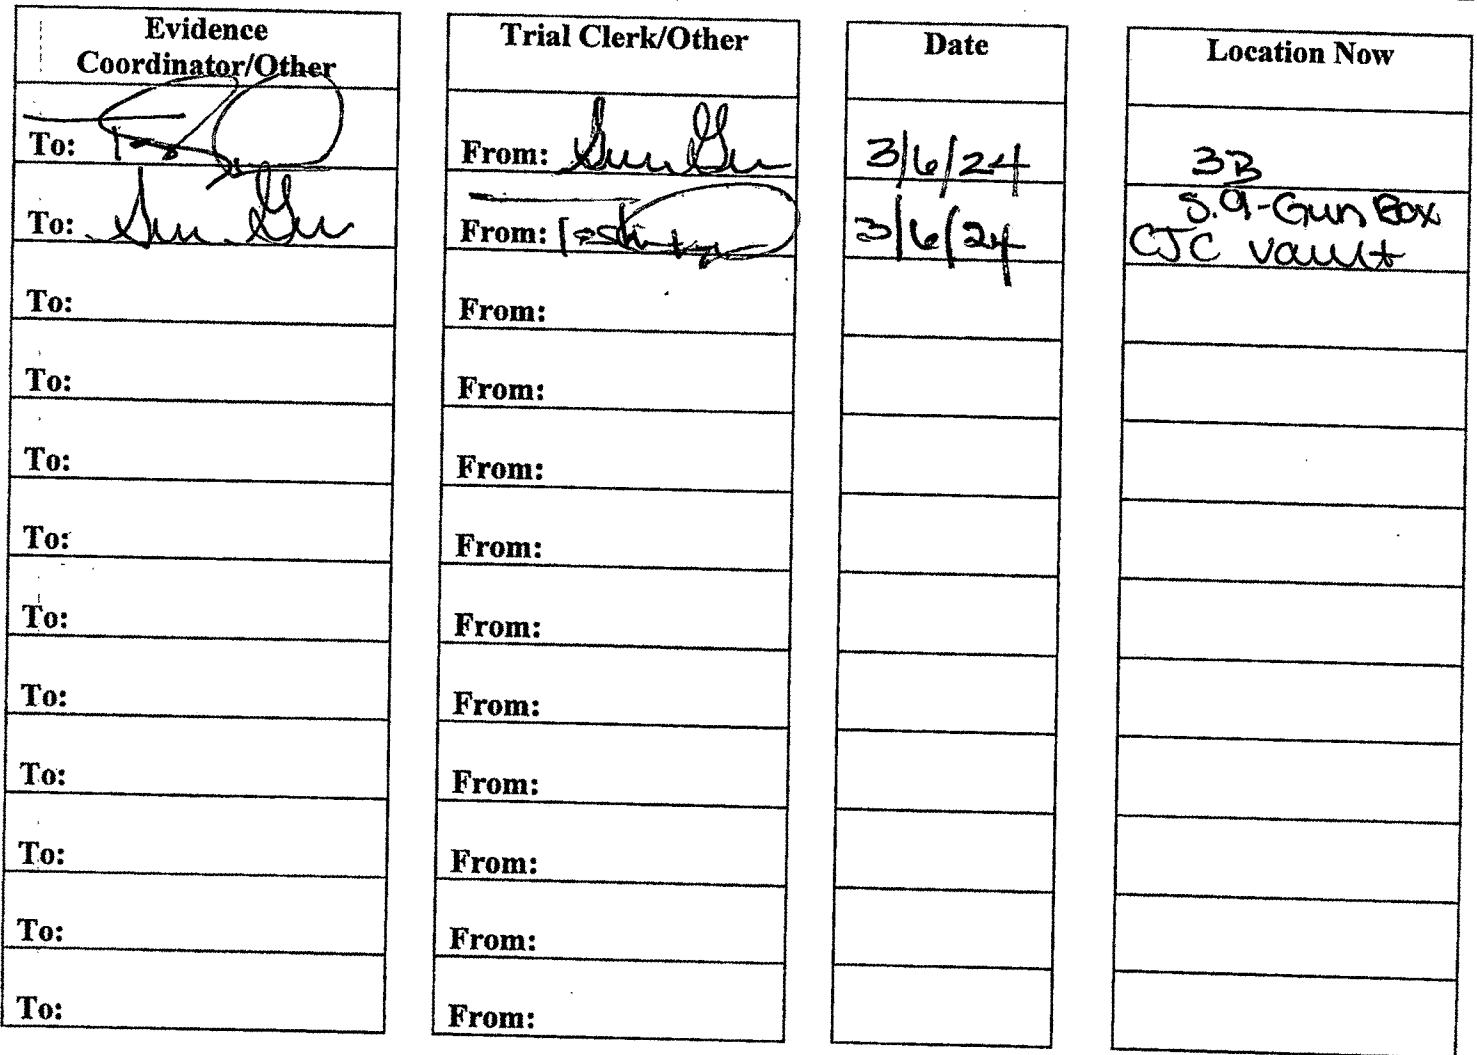 Evidence
Coordinator/Other
Trial Clerk/Other
Date
Location Now
To:
From:
3/6/24
3B
To:
From:
3/6/24
S.9-Gun Box
CJC vault
To:
From:
To:
From:
To:
From:
To:
From:
To:
From:
To:
From:
To:
From:
To:
From:
To:
From:
To:
From: